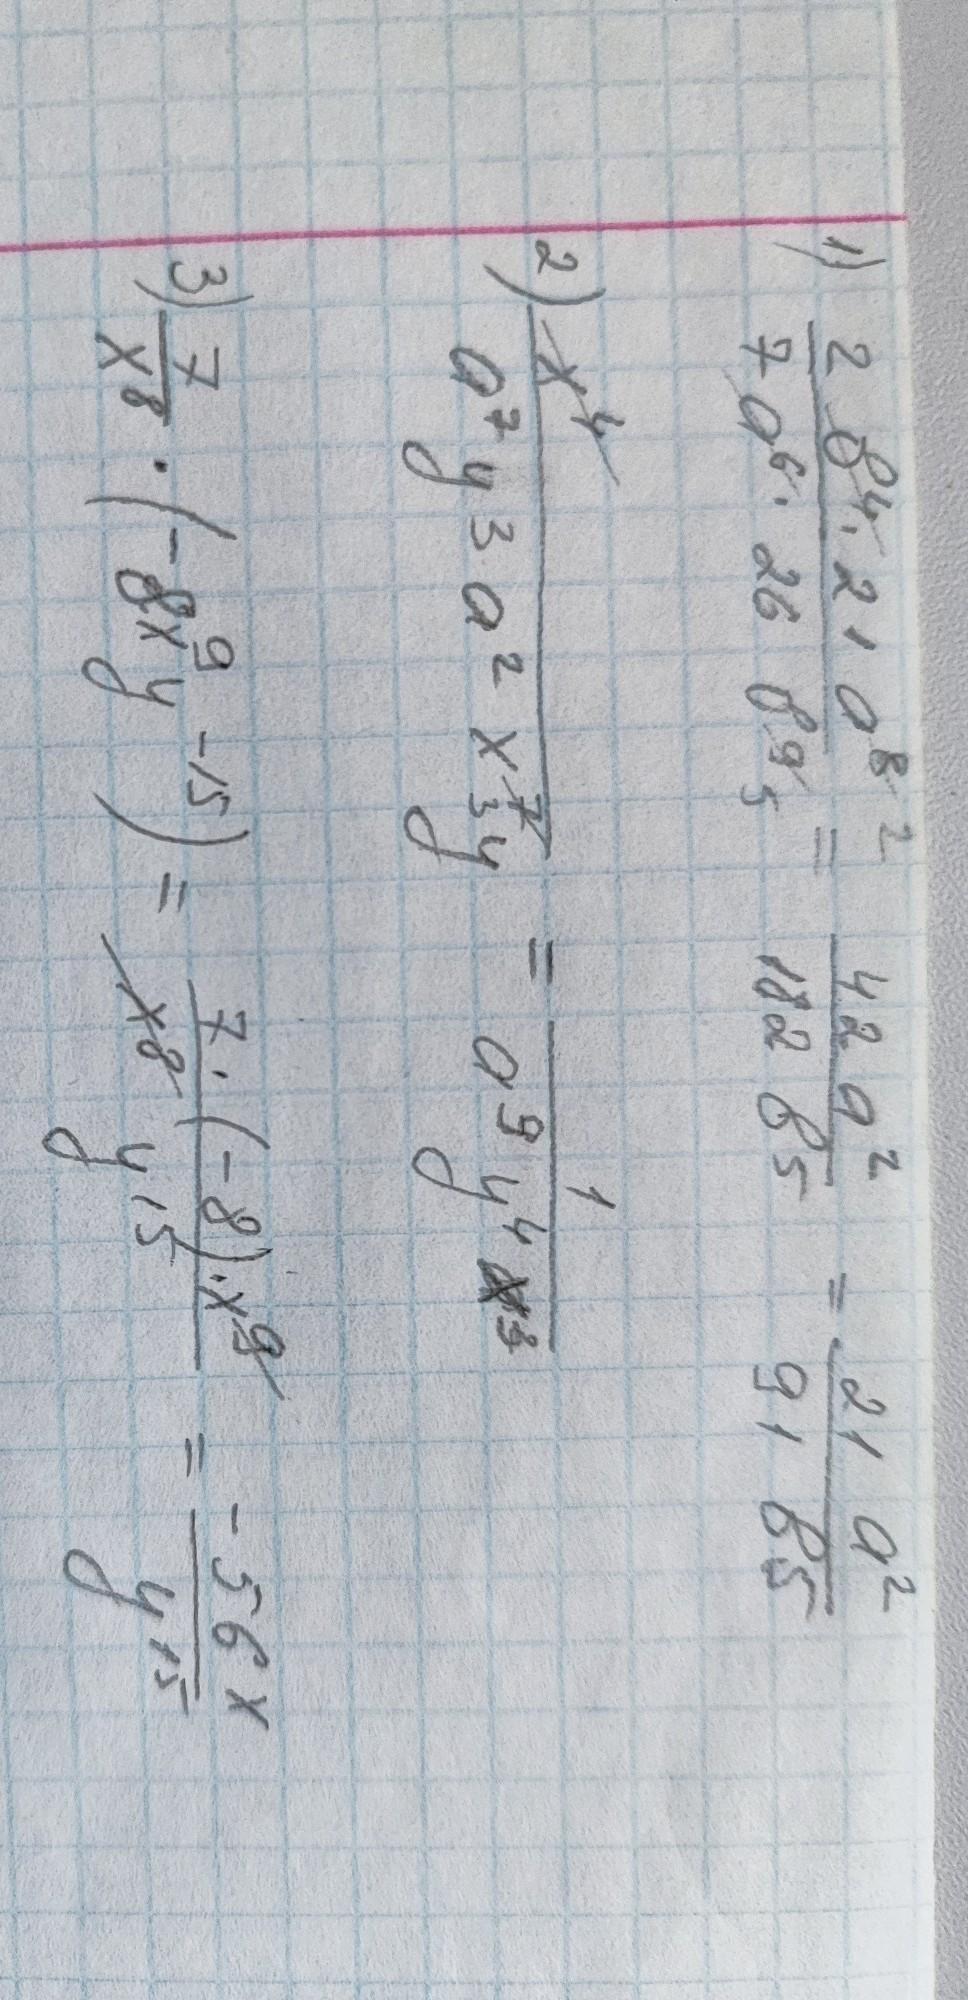 1) (2 в⁴ · 21 а⁸ ²)/(7 а⁶ · 26 в⁹ ₅) = (42 а²)/(182 в⁵) = (21 а²)/(91 в⁵)
2) x⁴/(a⁷ y³ a² x⁷ ₃ y) = 1/(a⁹ y⁴ x³)
3) 7/x⁸ · (-8x⁹ y⁻¹⁵) = (7 · (-8) · x⁹)/(x⁸ y¹⁵) = (-56x)/y¹⁵